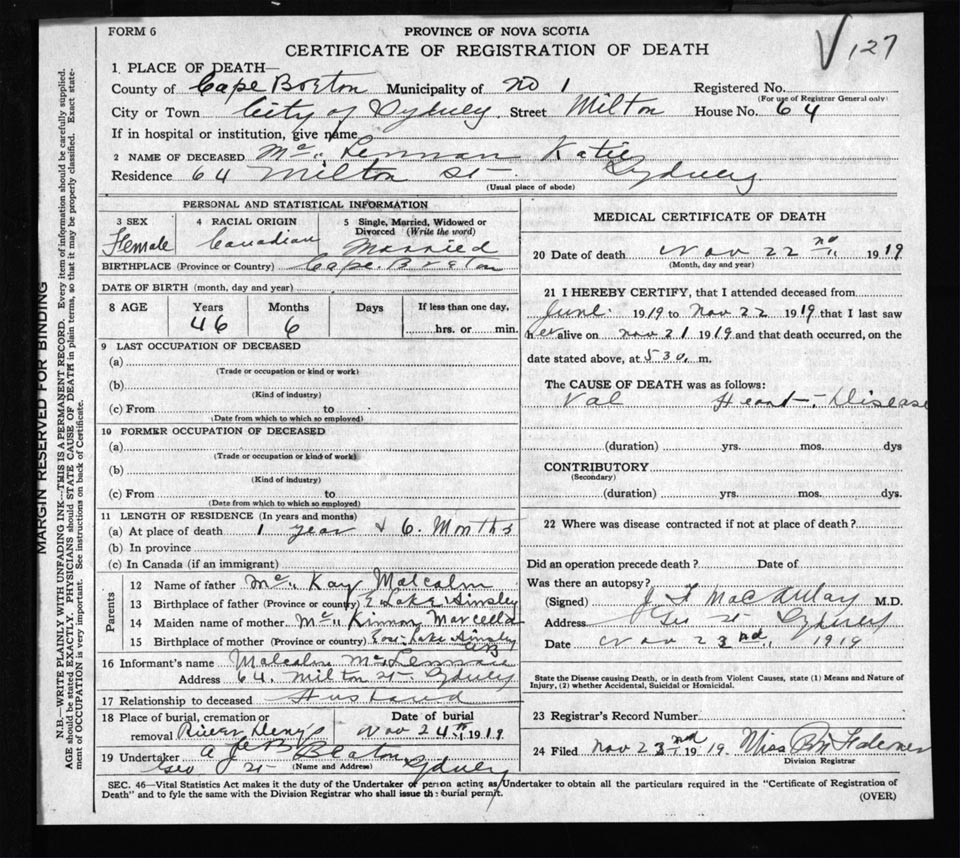 FORM 6
PROVINCE OF NOVA SCOTIA
CERTIFICATE OF REGISTRATION OF DEATH
V 127
1. PLACE OF DEATH—
County of Cape Breton Municipality of No 1 Registered No.
(For use of Registrar General only)
City or Town City of Sydney Street Milton House No. 64
If in hospital or institution, give name
2 NAME OF DECEASED Mc Lennan Katie
Residence 64 Milton St Sydney
(Usual place of abode)
PERSONAL AND STATISTICAL INFORMATION
3 SEX Female
4 RACIAL ORIGIN Canadian
5 Single, Married, Widowed or Divorced (Write the word) Married
BIRTHPLACE (Province or Country) Cape Breton
DATE OF BIRTH (month, day and year)
8 AGE Years 46 Months 6 Days If less than one day, hrs. or min.
9 LAST OCCUPATION OF DECEASED
(a)
(Trade or occupation or kind or work)
(b)
(Kind of industry)
(c) From to
(Date from which to which so employed)
10 FORMER OCCUPATION OF DECEASED
(a)
(Trade or occupation or kind of work)
(b)
(Kind of industry)
(c) From to
(Date from which to which so employed)
11 LENGTH OF RESIDENCE (In years and months)
(a) At place of death 1 year & 6. Months
(b) In province
(c) In Canada (if an immigrant)
Parents
12 Name of father Mc Kay Malcolm
13 Birthplace of father (Province or country) E Lake Ainsley
14 Maiden name of mother Mc Kinnon Marcella
15 Birthplace of mother (Province or country) Lake Ainsley CB
16 Informant's name Malcolm McLennan
Address 64. Milton St. Sydney
17 Relationship to deceased Husband
18 Place of burial, cremation or removal River Deny's
Date of burial Nov 24th 1919
19 Undertaker A J Beaton
Geo St Sydney
(Name and Address)
MEDICAL CERTIFICATE OF DEATH
20 Date of death Nov 22nd 1919
(Month, day and year)
21 I HEREBY CERTIFY, that I attended deceased from
June 1919 to Nov 22 1919 that I last saw
her alive on Nov 21 1919 and that death occurred, on the
date stated above, at 530 m.
The CAUSE OF DEATH was as follows:
Val Heart Disease
(duration) yrs. mos. dys
CONTRIBUTORY
(Secondary)
(duration) yrs. mos. dys.
22 Where was disease contracted if not at place of death?
Did an operation precede death? Date of
Was there an autopsy?
(Signed) MacAulay M.D.
Address Geo St Sydney
Date Nov 23nd 1919
State the Disease causing Death, or in death from Violent Causes, state (1) Means and Nature of
Injury, (2) whether Accidental, Suicidal or Homicidal.
23 Registrar's Record Number
24 Filed Nov 23nd 1919. Miss
Division Registrar
SEC. 46—Vital Statistics Act makes it the duty of the Undertaker or person acting as Undertaker to obtain all the particulars required in the "Certificate of Registration of
Death" and to fyle the same with the Division Registrar who shall issue the burial permit.
(OVER)
MARGIN RESERVED FOR BINDING
N.B.—WRITE PLAINLY WITH UNFADING INK—THIS IS A PERMANENT RECORD. Every item of information should be carefully supplied.
AGE should be stated EXACTLY. PHYSICIANS should STATE CAUSE OF DEATH in plain terms, so that it may be properly classified. Exact state-
ment of OCCUPATION is very important. See instructions on back of Certificate.